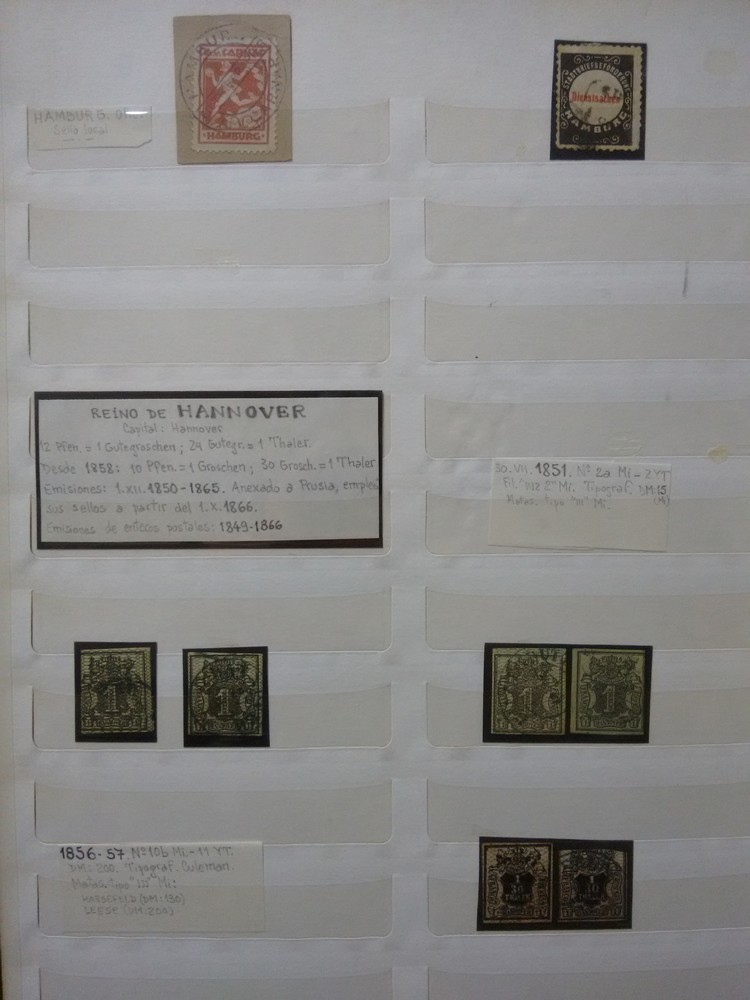 HAMBURG.
Sello local
HAMBURG
STADTBRIEFBEFÖRDERUNG
Dienstsachen
HAMBURG
REINO DE HANNOVER
Capital: Hannover
12 Pfen. = 1 Gutegroschen; 24 Gutegr. = 1 Thaler.
Desde 1858: 10 Pfen. = 1 Groschen; 30 Grosch. = 1 Thaler
Emisiones: 1.XII.1850-1865. Anexado a Prusia, emplea
sus sellos a partir del 1.X.1866.
Emisiones de enteros postales: 1849-1866
30.VII.1851. Nº 2a Mi-2YT
Fil. Mi. Tipograf. DM:15
Matas. tipo "III" Mi. (Mi)
1
1
1
1
1856-57. Nº 10b Mi-11 YT.
DM: 200. Tipograf. Culeman.
Matas. tipo "III" Mi:
HARSEFELD (DM:130)
LEESE (DM:200)
THALER
1
10
THALER